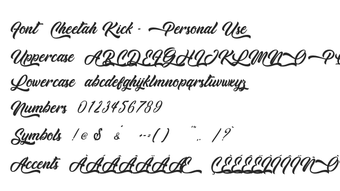 Font Cheetah Kick - Personal Use
Uppercase ABCDEFGHIJKLMNO P
Lowercase abcdefghijklmnopqrstuvwxyz
Numbers 0123456789
Symbols ! @ $ & ( ) / ?
Accents AAAAAAÆ ÇEEEEIIIINO